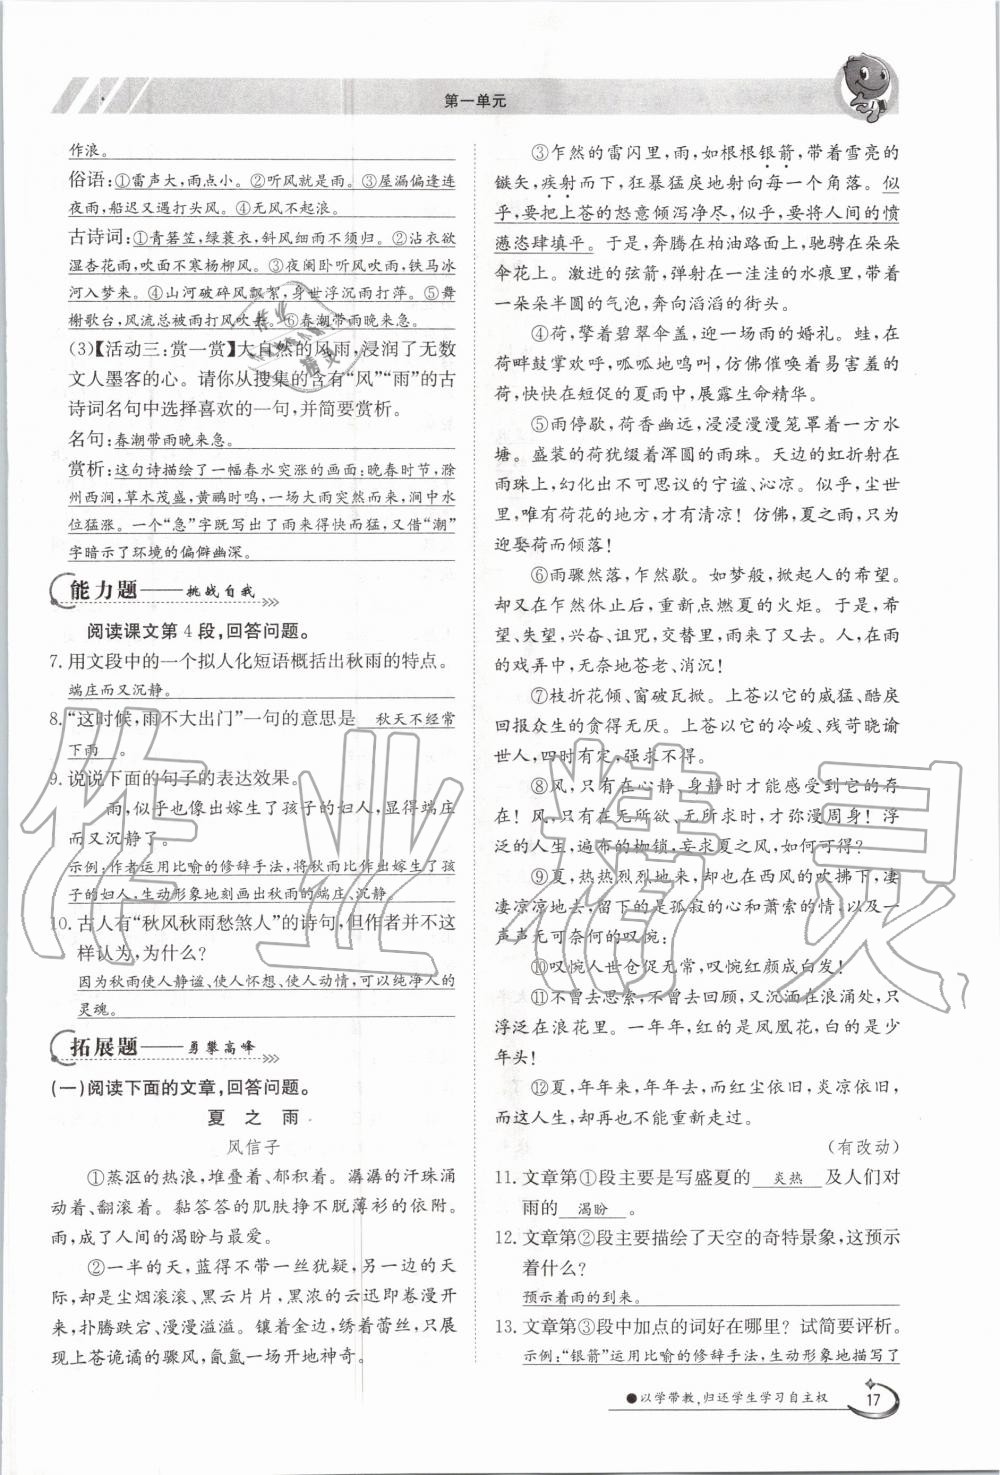 第一单元
作浪。
俗语:①雷声大,雨点小。②听风就是雨。③屋漏偏逢连
夜雨,船迟又遇打头风。④无风不起浪。
古诗词:①青箬笠,绿蓑衣,斜风细雨不须归。②沾衣欲
湿杏花雨,吹面不寒杨柳风。③夜阑卧听风吹雨,铁马冰
河入梦来。④山河破碎风飘絮,身世浮沉雨打萍。⑤舞
榭歌台,风流总被雨打风吹去。⑥春潮带雨晚来急。
(3)【活动三:赏一赏】大自然的风雨,浸润了无数
文人墨客的心。请你从搜集的含有“风”“雨”的古
诗词名句中选择喜欢的一句,并简要赏析。
名句:春潮带雨晚来急。
赏析:这句诗描绘了一幅春水突涨的画面:晚春时节,滁
州西涧,草木茂盛,黄鹂时鸣,一场大雨突然而来,涧中水
位猛涨。一个“急”字既写出了雨来得快而猛,又借“潮”
字暗示了环境的偏僻幽深。
能力题——挑战自我
阅读课文第4段,回答问题。
7. 用文段中的一个拟人化短语概括出秋雨的特点。
端庄而又沉静。
8. “这时候,雨不大出门”一句的意思是 秋天不经常
下雨 。
9. 说说下面的句子的表达效果。
雨,似乎也像出嫁生了孩子的妇人,显得端庄
而又沉静了。
示例:作者运用比喻的修辞手法,将秋雨比作出嫁生了孩
子的妇人,生动形象地刻画出秋雨的端庄、沉静。
10. 古人有“秋风秋雨愁煞人”的诗句,但作者并不这
样认为,为什么?
因为秋雨使人静谧、使人怀想、使人动情,可以纯净人的
灵魂。
拓展题——勇攀高峰
(一)阅读下面的文章,回答问题。
夏 之 雨
风信子
①蒸沤的热浪,堆叠着、郁积着。潺潺的汗珠涌
动着、翻滚着。黏答答的肌肤挣不脱薄衫的依附。
雨,成了人间的渴盼与最爱。
②一半的天,蓝得不带一丝犹疑。另一边的天
际,却是尘烟滚滚、黑云片片,黑浓的云迅即卷漫开
来,扑腾跌宕、漫漫溢溢。镶着金边,绣着蕾丝,只展
现上苍诡谲的骤风,氤氲一场开地神奇。
③乍然的雷闪里,雨,如根根银箭,带着雪亮的
镞矢,疾射而下,狂暴猛戾地射向每一个角落。似
乎,要把上苍的怒意倾泻净尽,似乎,要将人间的愤
懑恣肆填平。于是,奔腾在柏油路面上,驰骋在朵朵
伞花上。激进的弦箭,弹射在一洼洼的水痕里,带着
一朵朵半圆的气泡,奔向滔滔的街头。
④荷,擎着碧翠伞盖,成就一场雨的婚礼。蛙,在
荷畔鼓掌欢呼,呱呱地鸣叫,仿佛催唤着易害羞的
荷,快快在短促的夏雨中,展露生命精华。
⑤雨停歇,荷香幽远,浸浸漫漫笼罩着一方水
塘。盛装的荷犹缀着浑圆的雨珠。天边的虹折射在
雨珠上,幻化出不可思议的宁谧、沁凉。似乎,尘世
里,唯有荷花的地方,才有清凉!仿佛,夏之雨,只为
迎娶荷而倾落!
⑥雨骤然落,乍然歇。如梦般,掀起人的希望。
却又在乍然休止后,重新点燃夏的火炬。于是,希
望、失望,兴奋、诅咒,交替里,雨来了又去。人,在雨
的戏弄中,无奈地苍老、消沉!
⑦枝折花倾、窗破瓦掀。上苍以它的威猛、酷戾
回报众生的贪得无厌。上苍以它的冷峻、残苛晓谕
世人,四时有定,强求不得。
⑧风,只有在心静、身静时才能感受到它的存
在!风,只有在无所欲、无所求时,才弥漫周身!浮
泛的人生,遍布的枷锁,妄求夏之风,如何可得?
⑨夏,热热烈烈地来,却总在西风的吹拂下,凄
凄凉凉地去,留下的是孤寂的心和萧索的情,以及一
声声无可奈何的叹惋:
⑩叹惋人世仓促无常,叹惋红颜成白发!
⑪不曾去思索,不曾远眺,又沉湎在浪涌处,只
浮泛在浪花里。一年年,红的是凤凰花,白的是少
年头!
⑫夏,年年来,年年去,而红尘依旧,炎凉依旧,
而这人生,却半点不可能重新走过。
(有改动)
11. 文章第①段主要是写盛夏的 炎热 及人们对
雨的 渴盼 。
12. 文章第②段主要描绘了天空的奇特景象,这预示
着什么?
预示着雨的到来。
13. 文章第③段中加点的词好在哪里?试简要评析。
示例:“银箭”运用比喻的修辞手法,生动形象地描写了
●以学带教,归还学生学习自主权
17
作业精灵